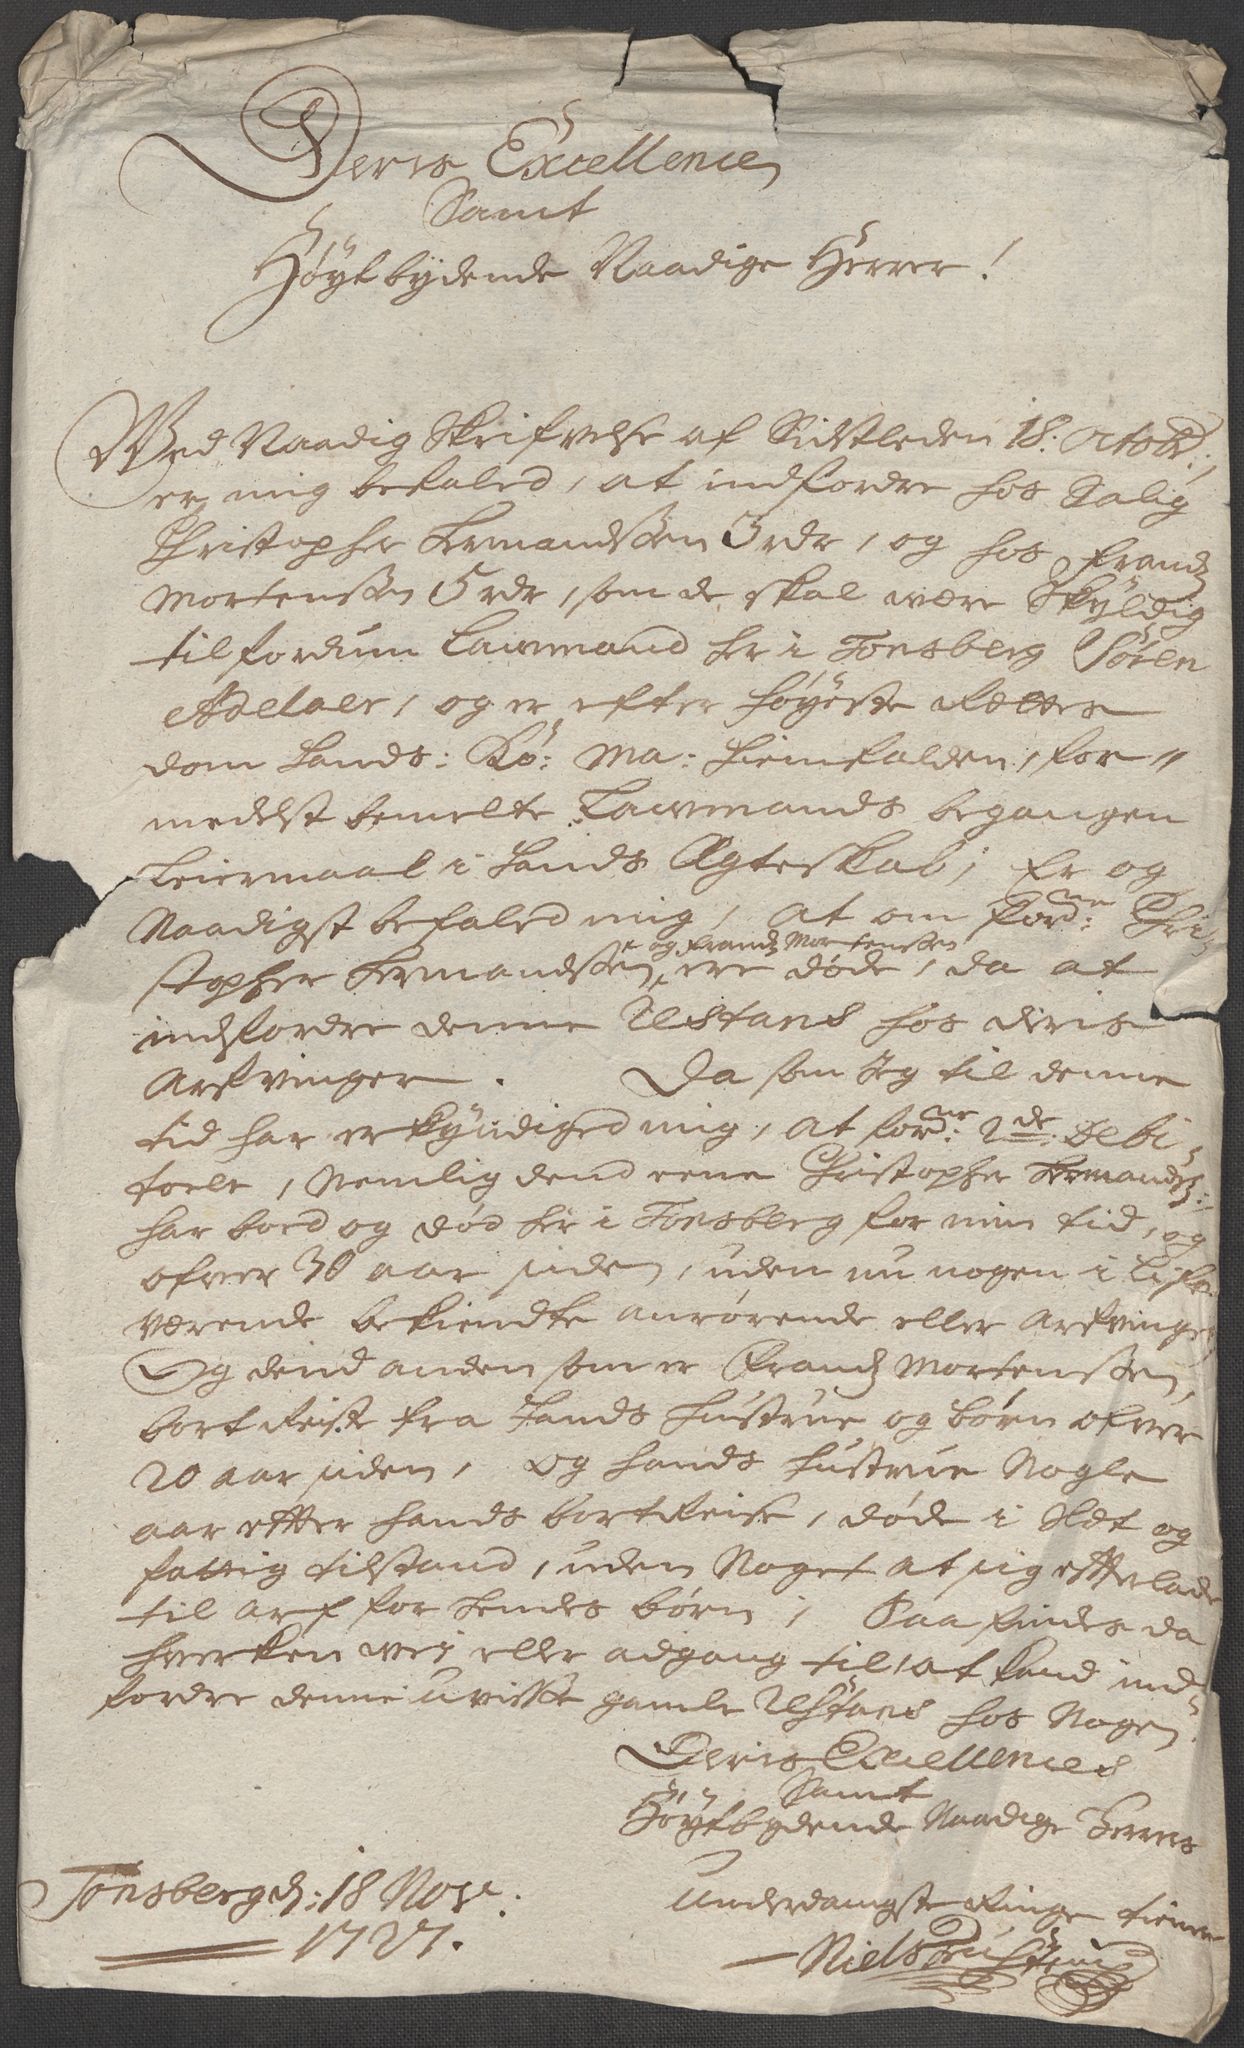 Deris Excellence
Samt
Høÿtbÿdende Naadige Herrer!
Wed Naadig Skrifvelse af Sidstleden 18. Octobr:,
er mig befaled, at indfordre hos Salig
Christopher Hermandssen 3 rdr, og hos Frandz
Mortenssen 5 rdr, som de skal være Skÿldig
til fordum Lawmand her i Tonsberg Søren
Adelaer, og er efter høÿeste Rettes
dom Hands: Kö: Ma: hiemfalden, for-
medelst bemelte Lawmands begangen
Leiermaal i hands Ægteskab; Er og
Naadigst befaled mig, at om Fordne: Chri-
stopher Hermandssen og Frandz Mortenssen ere døde, da at
indfordre denne Restans hos deris
Arfvinger. Da som Jeg til denne
tid har erkÿndiged mig, at fordne: 2de Debi-
torer, Nemlig dend eene Christopher Hermandz:
har boed og død her i Tonsberg for min tid, og
ofver 30 aar siden, uden nu nogen i Lifve
værende bekiendte anrørende eller Arfvinger
Og dend anden som er Frandz Mortenssen,
bortReiste fra hands Hustrue og børn ofver
20 aar siden, og hands hustrue Nogle
aar efter hands bortReise, døde i Slet og
fattig tilstand, uden Noget at sig efterlade
til arf for hendes børn; Saa findes da
hverken vej eller adgang til, at kand ind-
fordre denne uvisse gamle Restans hos Nogen.
Deris Excellences
Samt
Høÿtbÿdende Naadige Herrers
Tonsberg d: 18 Nov:
1727.
Underdanigste Ringe tiener
Niels